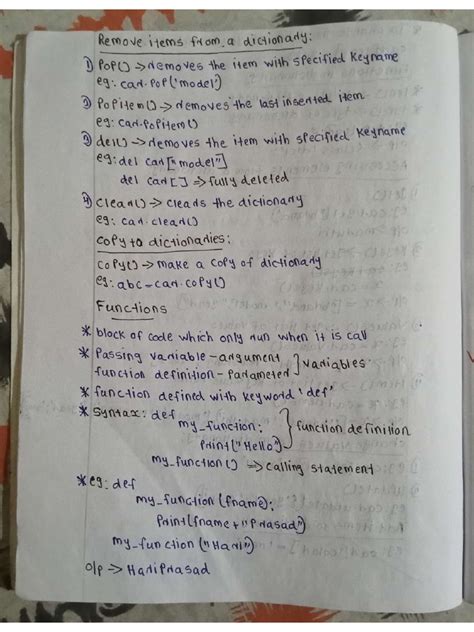 Remove items from a dictionary:
1) pop() → removes the item with specified keyname
eg: car.pop('model')
2) popitem() → removes the last inserted item
eg: car.popitem()
3) del() → removes the item with specified keyname
eg: del car["model"]
del car[] ⇒ fully deleted
4) clear() → clears the dictionary
eg: car.clear()
Copy to dictionaries:
copy() → make a copy of dictionary
eg: abc = car.copy()
Functions
* block of code which only run when it is call
* Passing variable - argument
function definition - parameter } variables
* function defined with keyword 'def'
* syntax: def
my_function:
print("Hello") } function definition
my_function() ⇒ calling statement
* eg: def
my_function(fname):
print(fname+"Prasad")
my_function("Hari")
o/p → HariPrasad